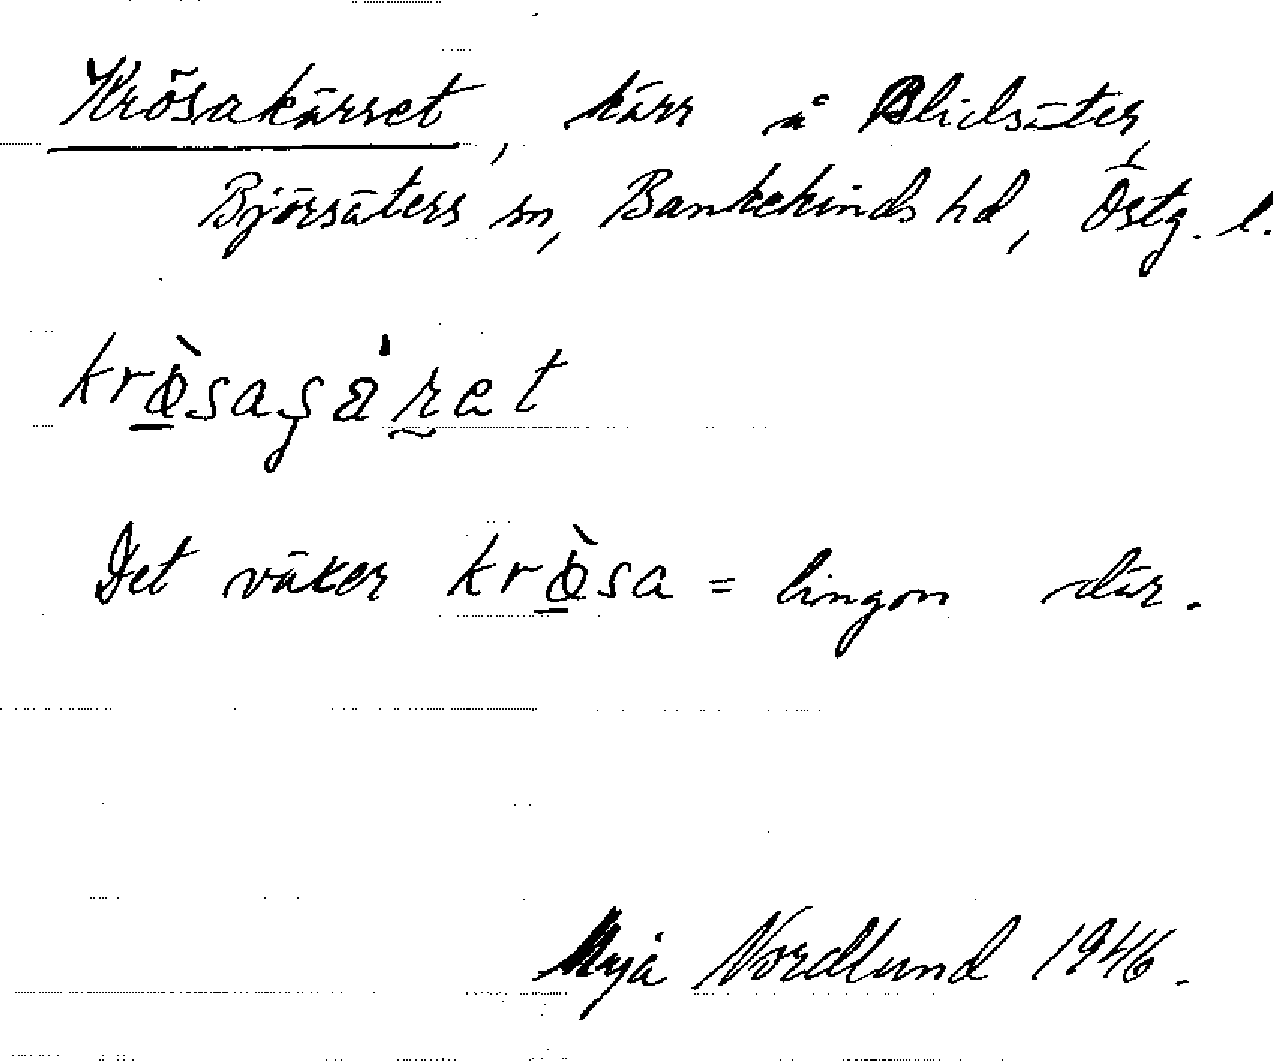 Krösakärret, kärr å Blidsäter,
Björsäters sn, Bankekinds hd, Östg. l.
krɵ̀saʂæ̍ret
Det växer krɵ̀sa = lingon där.
Maja Nordlund 1946.